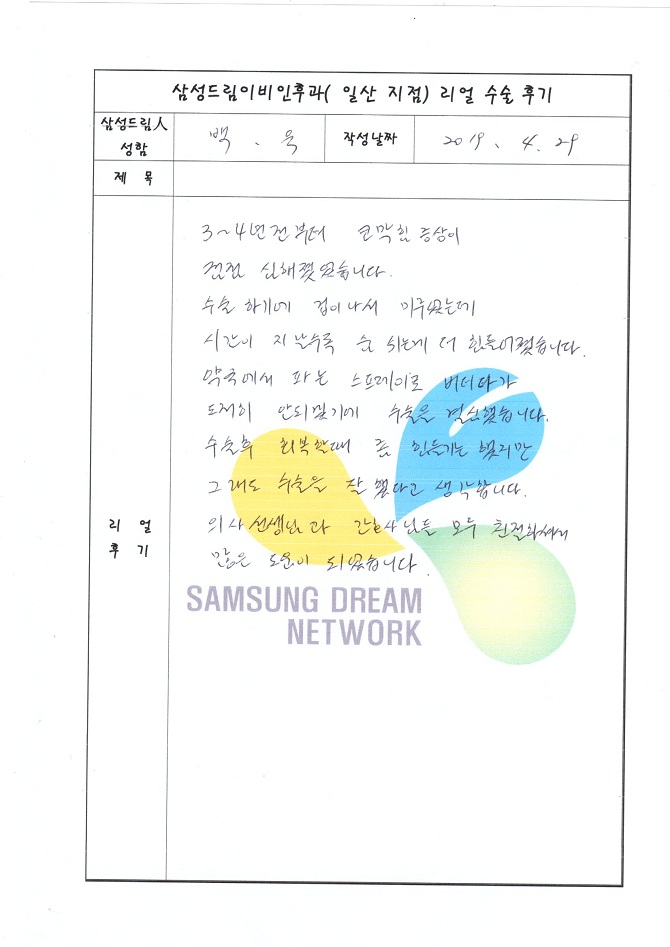 삼성드림이비인후과( 일산 지점) 리얼 수술 후기
삼성드림人 성함
백 . 옥
작성날짜
2019. 4. 29
제 목
리 얼 후 기
3~4년 전부터 코막힘 증상이
점점 심해졌었습니다.
수술 하기에 겁이나서 미루었는데
시간이 지날수록 숨 쉬는게 더 힘들어졌습니다.
약국에서 파는 스프레이로 버티다가
도저히 안되겠기에 수술을 결심했습니다.
수술후 회복할때 좀 힘들기는 했지만
그래도 수술을 잘 했다고 생각합니다.
의사선생님과 간호사님들 모두 친절하셔서
많은 도움이 되었습니다.
SAMSUNG DREAM
NETWORK